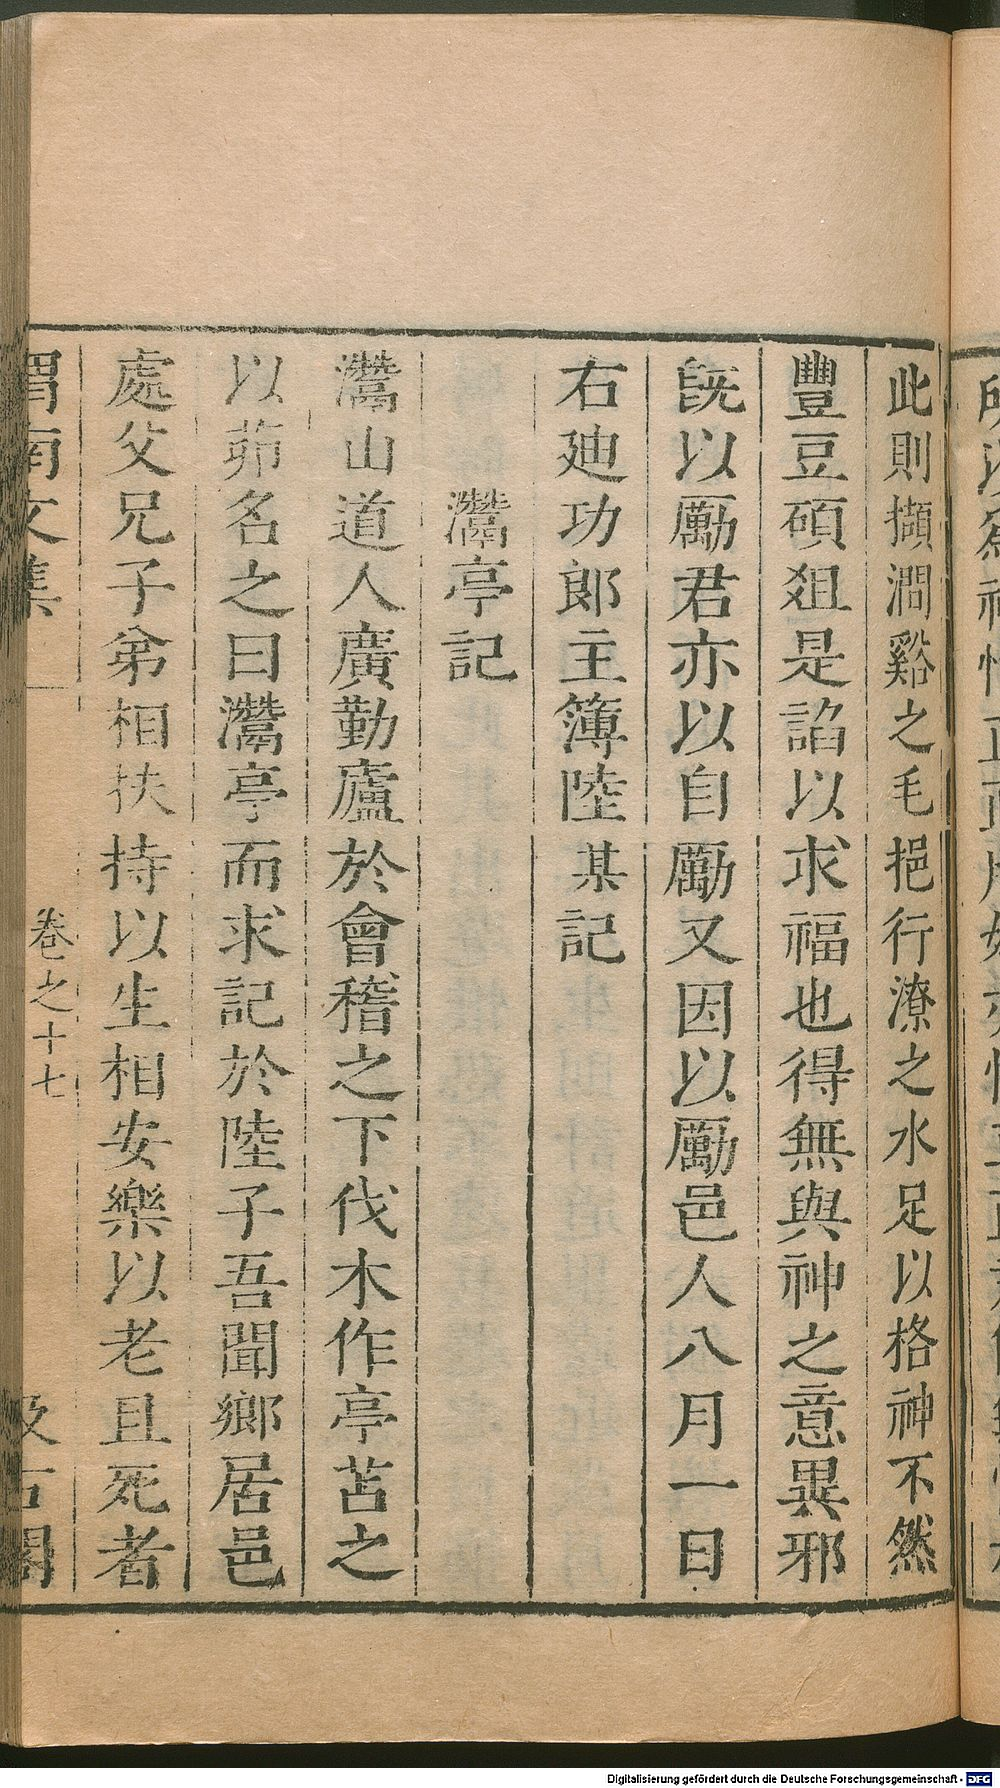 此則擷澗谿之毛挹行潦之水足以格神不然
豐豆碩俎是諂以求福也得無與神之意異邪
旣以勵君亦以自勵又因以勵邑人八月一日
右廸功郎主簿陸某記
灊亭記
灊山道人廣勤廬於會稽之下伐木作亭苫之
以茆名之曰灊亭而求記於陸子吾聞鄉居邑
處父兄子弟相扶持以生相安樂以老且死者
渭南文集
卷之十七
汲古閣
Digitalisierung gefördert durch die Deutsche Forschungsgemeinschaft - DFG